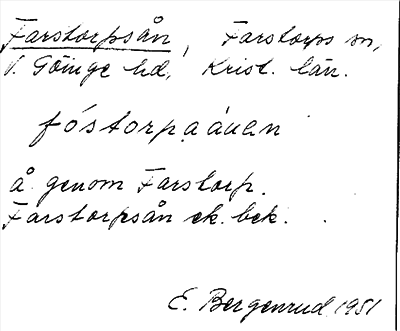 Farstorpsån, Farstorps sn,
V. Göinge hd, Krist. län.
fóstorpaáuan
å genom Farstorp.
Farstorpsån ek. bek.
E. Bergenrud 1951